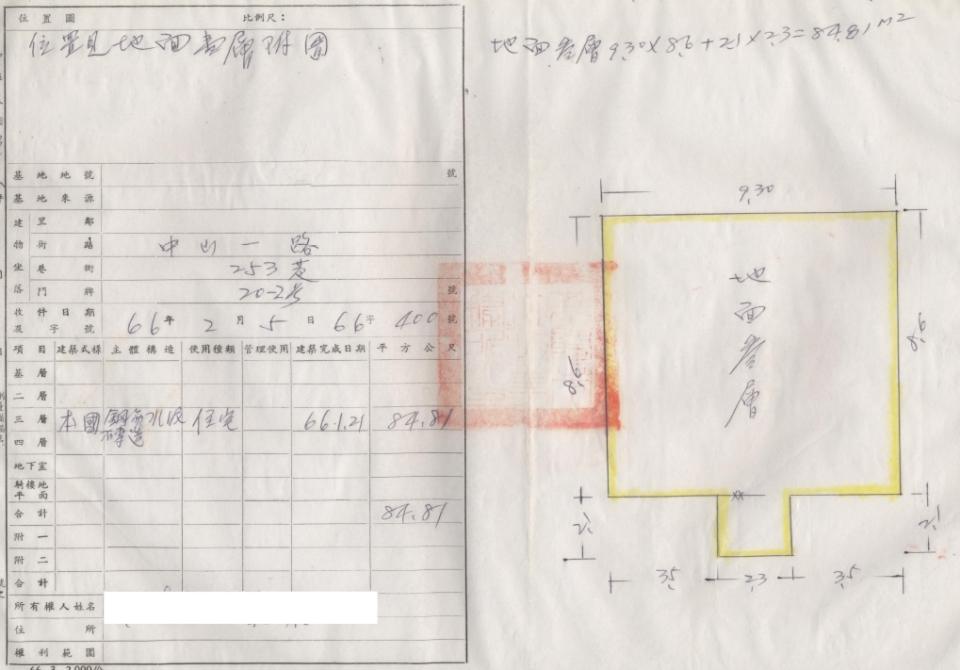 位置圖 比例尺:
位置見地面壹層附圖
基地地號 號
基地來源
建 里鄰
物 街路 中山一路
坐 巷街 253巷
落 門牌 20-2號 號
收件日期及字號 66年2月5日66字400號
項目 建築式樣 主體構造 使用種類 管理使用 建築完成日期 平方公尺
基層
二層
三層 本國 鋼筋水泥磚造 住宅 66.1.21 84.81
四層
地下室
騎樓地平面
合計 84.81
附一
附二
合計
所有權人姓名
住所
權利範圍
地面壹層 9.30×8.6+2.1×2.3=84.81M2
9.30
地面壹層
8.6
8.6
2.1
2.1
3.5 2.3 3.5